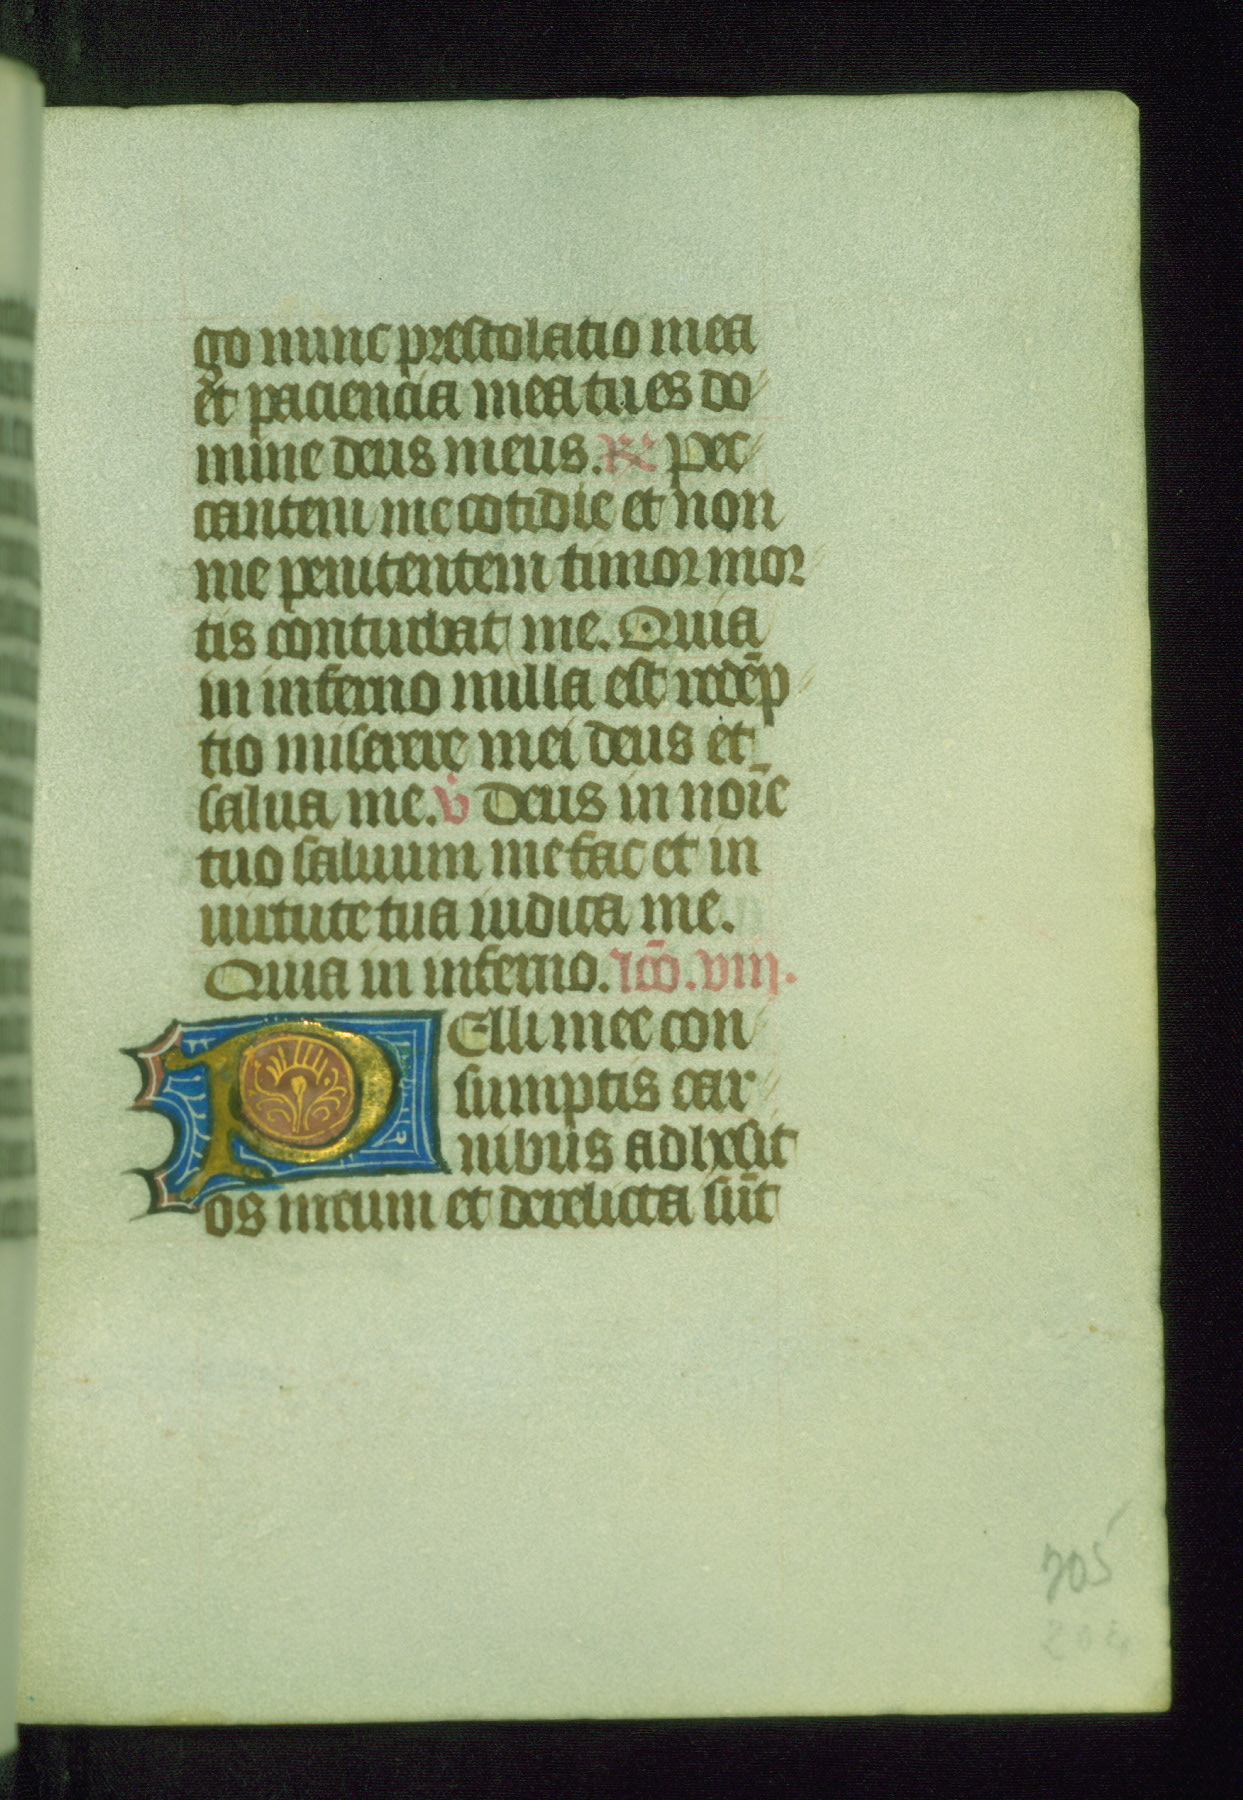 go nunc prestolatio mea
et paciencia mea tu es do
mine deus meus. ℟ Pec
cantem me cotidie et non
me penitentem timor mor
tis conturbat me. Quia
in inferno nulla est redēp
tio miserere mei deus et
salua me. ℣ Deus in noīe
tuo saluum me fac et in
uirtute tua iudica me.
Quia in inferno. lcō. viii.
Pelli mee con
sumptis car
nibus adhesit
os meum et derelicta sūt
205